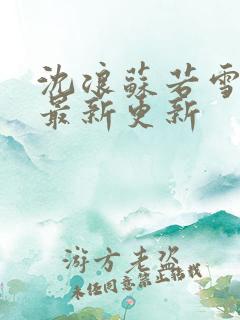 沈浪蘇若雪
最新更新
游方老盗
未经同意禁止转载